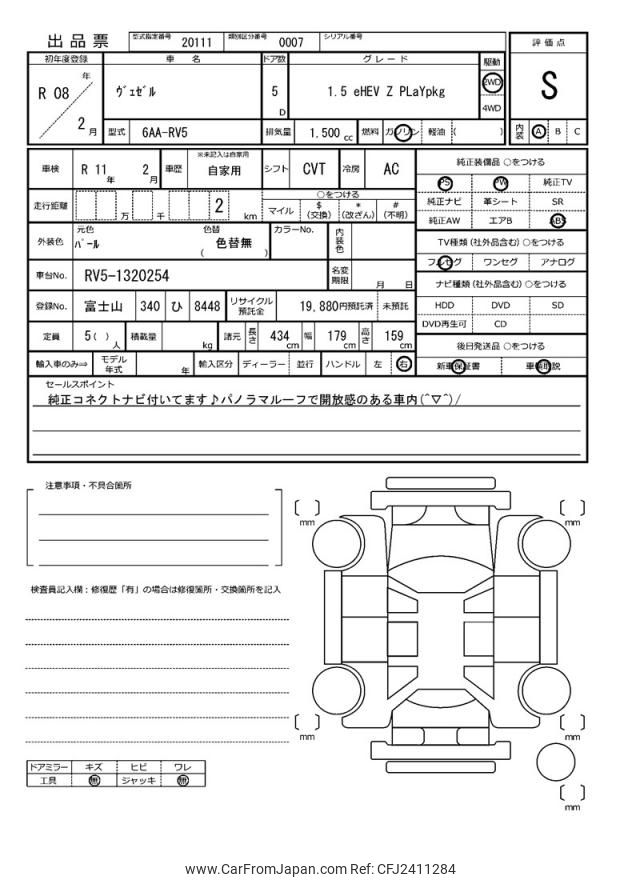 出品票
型式指定番号 20111 類別区分番号 0007 シリアル番号
初年度登録 車名 ドア数 グレード 駆動 評価点
R 08 年 2 月
ヴェゼル 5 D 1.5 eHEV Z PLaYpkg 2WD 4WD S
型式 6AA-RV5 排気量 1.500 cc 燃料 ガソリン 軽油 ( ) 内装 A B C
車検 R 11 年 2 月 車歴 ※未記入は自家用 自家用 シフト CVT 冷房 AC
純正装備品 ○をつける
PS PW 純正TV
純正ナビ 革シート SR
純正AW エアB ABS
走行距離 万 千 2 km
○をつける
マイル $ (交換) * (改ざん) # (不明)
外装色 元色 パール 色替 ( 色替無 ) カラーNo. 内装色
TV種類 (社外品含む) ○をつける
フルセグ ワンセグ アナログ
車台No. RV5-1320254 名変期限 月 日
ナビ種類 (社外品含む) ○をつける
HDD DVD SD
DVD再生可 CD
登録No. 富士山 340 ひ 8448 リサイクル預託金 19,880円預託済 未預託
定員 5 ( ) 人 積載量 kg 諸元 長さ 434 cm 幅 179 cm 高さ 159 cm
後日発送品 ○をつける
新車保証書 車輌取説
輸入車のみ⇒ モデル年式 年 輸入区分 ディーラー 並行 ハンドル 左 右
セールスポイント
純正コネクトナビ付いてます♪パノラマルーフで開放感のある車内(^▽^)/
注意事項・不具合箇所
検査員記入欄：修復歴「有」の場合は修復箇所・交換箇所を記入
[ ] mm
[ ] mm
[ ] mm
[ ] mm
[ ] mm
ドアミラー キズ ヒビ ワレ
工具 無 ジャッキ 無
www.CarFromJapan.com Ref: CFJ2411284